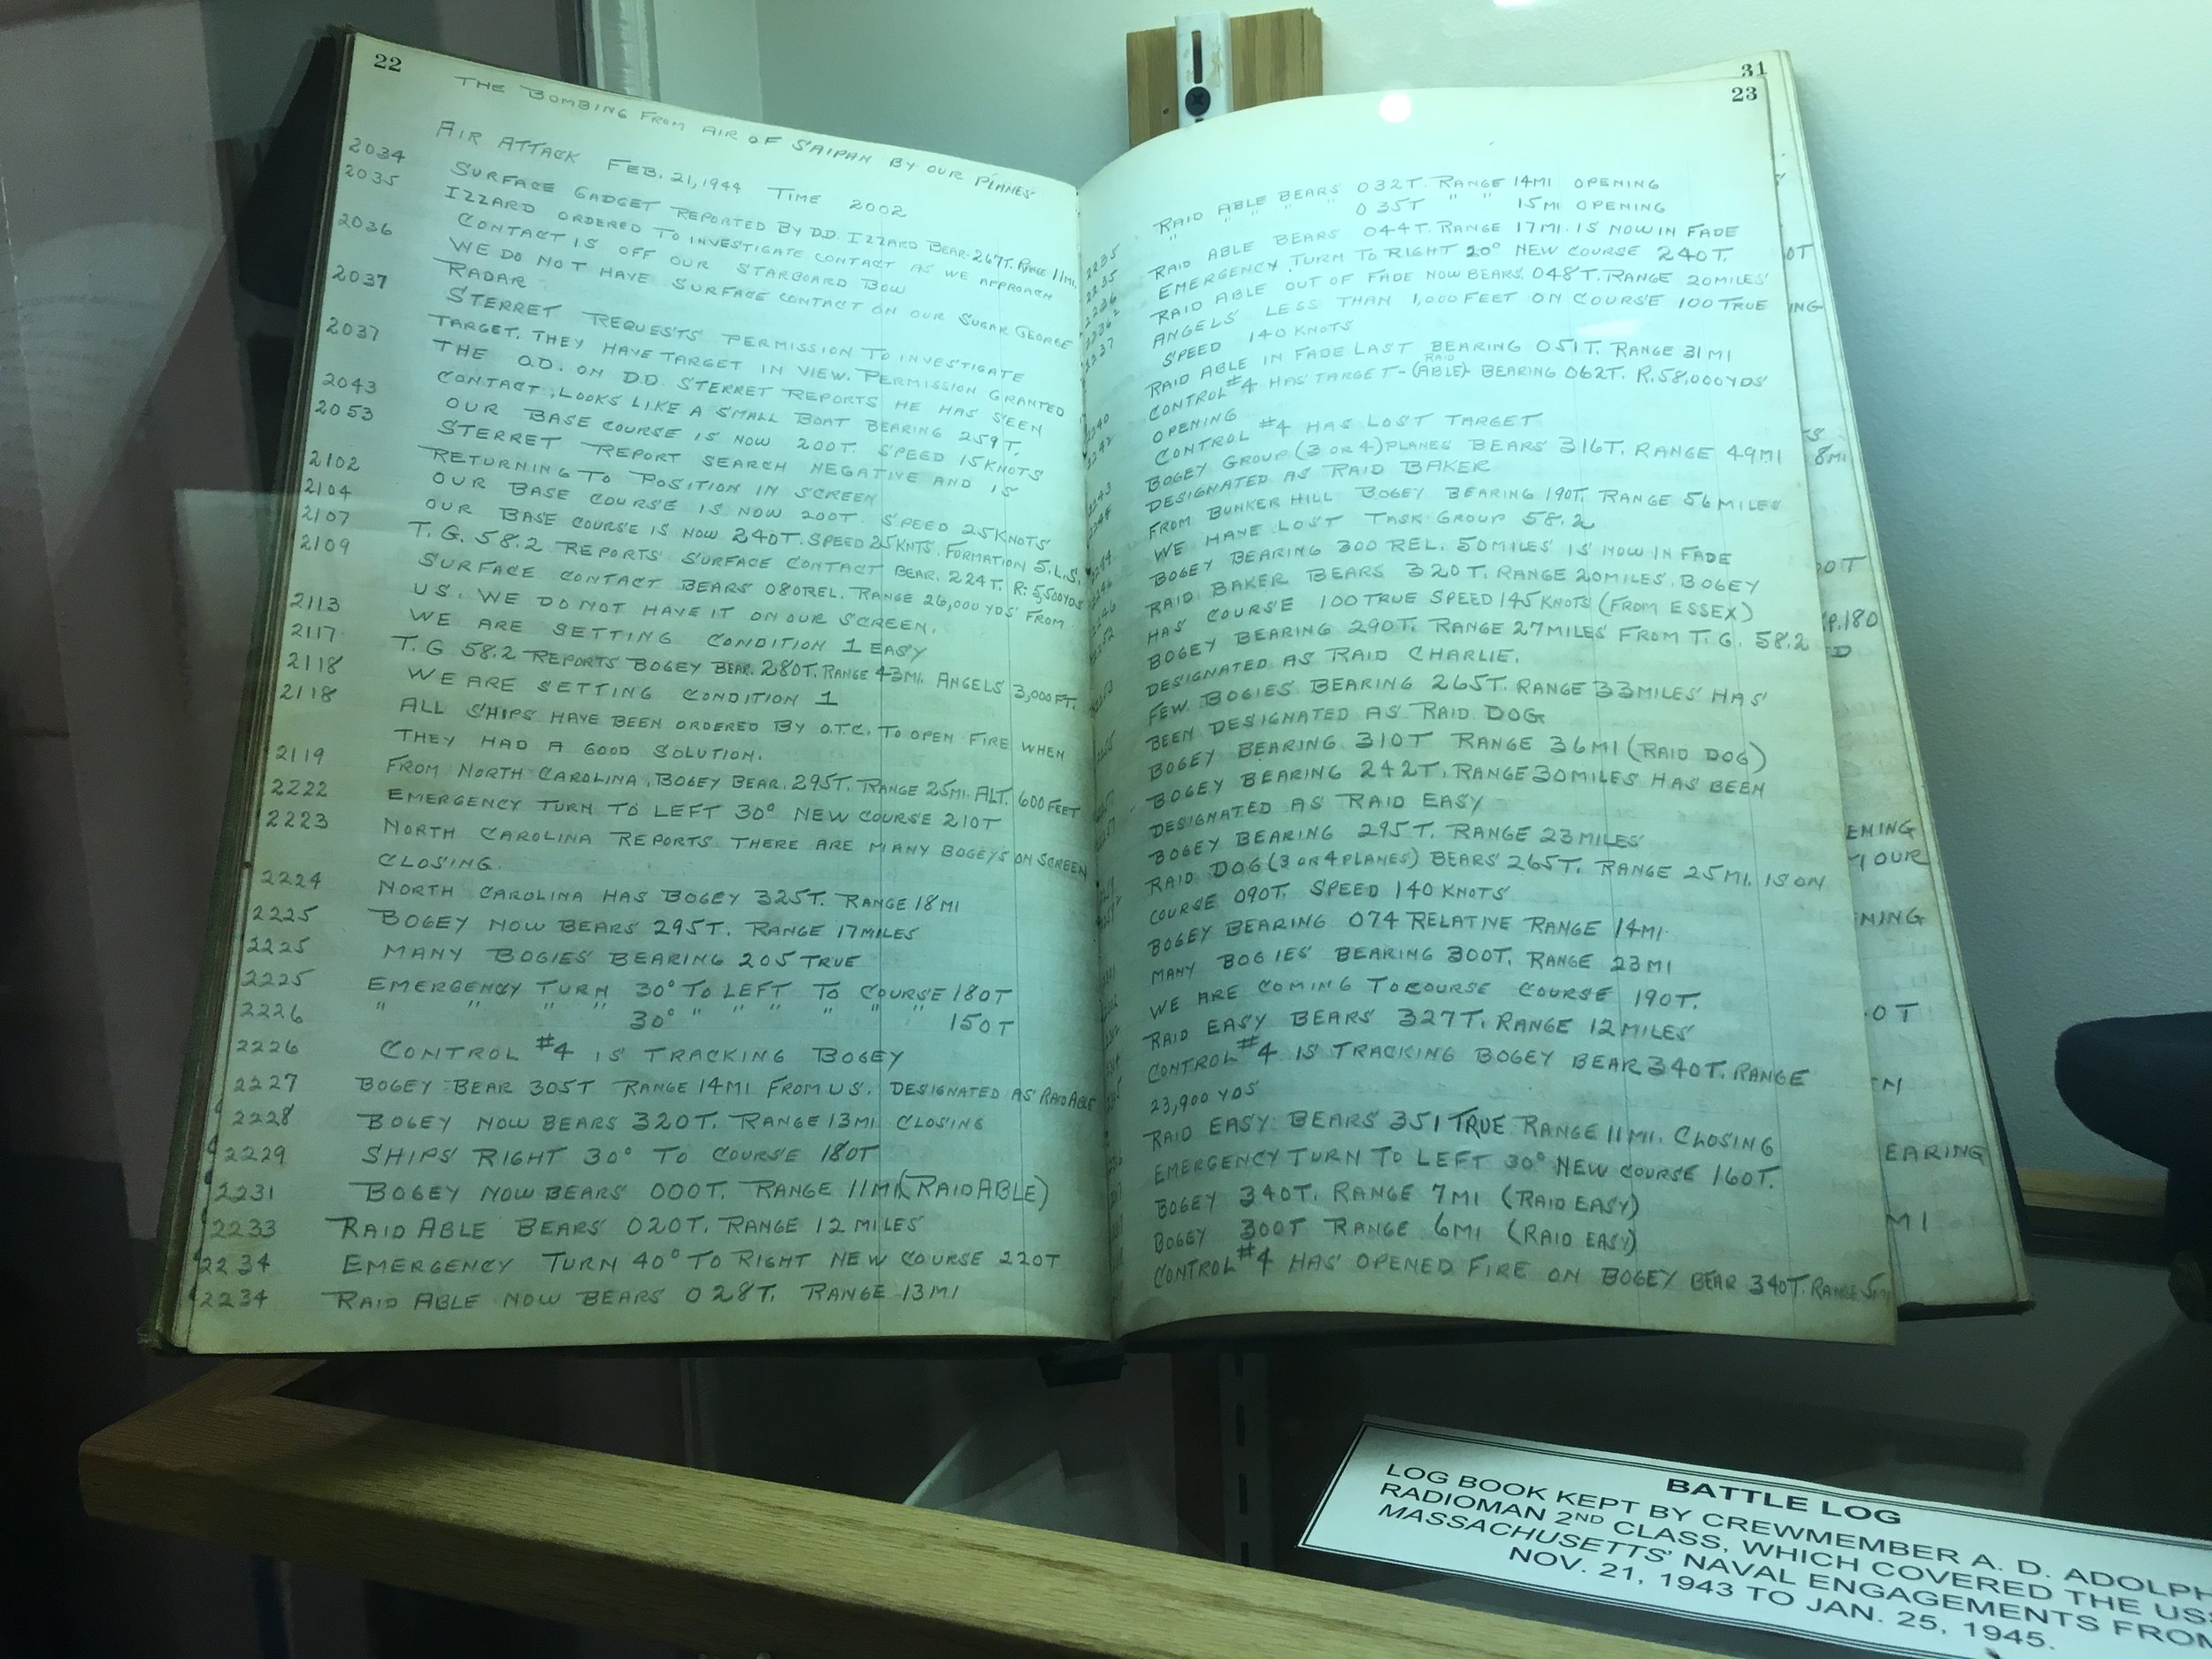 22
THE BOMBING FROM AIR OF SAIPAN BY OUR PLANES
AIR ATTACK FEB. 21, 1944 TIME 2002
2034 SURFACE GADGET REPORTED BY D.D. IZZARD BEAR. 267T. RANGE 11MI.
2035 IZZARD ORDERED TO INVESTIGATE CONTACT AS WE APPROACH
CONTACT IS OFF OUR STARBOARD BOW
2036 WE DO NOT HAVE SURFACE CONTACT ON OUR SUGAR GEORGE
RADAR
2037 STERRET REQUESTS PERMISSION TO INVESTIGATE
TARGET. THEY HAVE TARGET IN VIEW. PERMISSION GRANTED
2037 THE O.D. ON D.D. STERRET REPORTS HE HAS SEEN
CONTACT, LOOKS LIKE A SMALL BOAT BEARING 259T.
2043 OUR BASE COURSE IS NOW 200T. SPEED 15 KNOTS
2053 STERRET REPORT SEARCH NEGATIVE AND IS
RETURNING TO POSITION IN SCREEN
2102 OUR BASE COURSE IS NOW 200T. SPEED 25 KNOTS
2104 OUR BASE COURSE IS NOW 240T. SPEED 25 KNTS. FORMATION 5.L.S.
2107 T.G. 58.2 REPORTS SURFACE CONTACT BEAR. 224T. R: 5,500YDS
2109 SURFACE CONTACT BEARS 080REL. RANGE 26,000 YDS FROM
US. WE DO NOT HAVE IT ON OUR SCREEN.
2113 WE ARE SETTING CONDITION 1 EASY
2117 T.G 58.2 REPORTS BOGEY BEAR. 280T. RANGE 43MI. ANGELS 3,000 FT.
2118 WE ARE SETTING CONDITION 1
2118 ALL SHIPS HAVE BEEN ORDERED BY O.T.C. TO OPEN FIRE WHEN
THEY HAD A GOOD SOLUTION.
2119 FROM NORTH CAROLINA, BOGEY BEAR. 295T. RANGE 25MI. ALT. 600 FEET
2222 EMERGENCY TURN TO LEFT 30° NEW COURSE 210T
2223 NORTH CAROLINA REPORTS THERE ARE MANY BOGEYS ON SCREEN
CLOSING.
2224 NORTH CAROLINA HAS BOGEY 325T. RANGE 18MI
2225 BOGEY NOW BEARS 295T. RANGE 17 MILES
2225 MANY BOGIES BEARING 205 TRUE
2225 EMERGENCY TURN 30° TO LEFT TO COURSE 180T
2226 " " " " 30° " " " " " " 150T
2226 CONTROL #4 IS TRACKING BOGEY
2227 BOGEY BEAR 305T RANGE 14MI FROM US. DESIGNATED AS RAID ABLE
2228 BOGEY NOW BEARS 320T. RANGE 13MI CLOSING
2229 SHIPS RIGHT 30° TO COURSE 180T
2231 BOGEY NOW BEARS 000T. RANGE 11MI (RAID ABLE)
2233 RAID ABLE BEARS 020T. RANGE 12 MILES
2234 EMERGENCY TURN 40° TO RIGHT NEW COURSE 220T
2234 RAID ABLE NOW BEARS 028T. RANGE 13MI
31
23
RAID ABLE BEARS 032T. RANGE 14MI OPENING
" " " 035T " " 15MI OPENING
2235 RAID ABLE BEARS 044T. RANGE 17MI. IS NOW IN FADE
2235 EMERGENCY TURN TO RIGHT 20° NEW COURSE 240T.
2236 RAID ABLE OUT OF FADE NOW BEARS 048T. RANGE 20MILES
ANGELS LESS THAN 1,000 FEET ON COURSE 100 TRUE
2237 SPEED 140 KNOTS
RAID ABLE IN FADE LAST BEARING 051T. RANGE 31MI
CONTROL #4 HAS TARGET - (RAID ABLE) BEARING 062T. R. 58,000YDS
OPENING
2240 CONTROL #4 HAS LOST TARGET
2242 BOGEY GROUP (3 OR 4) PLANES BEARS 316T. RANGE 49MI
DESIGNATED AS RAID BAKER
2243 FROM BUNKER HILL BOGEY BEARING 190T. RANGE 56 MILES
WE HAVE LOST TASK GROUP 58.2
BOGEY BEARING 300 REL. 50MILES IS NOW IN FADE
RAID BAKER BEARS 320T. RANGE 20MILES. BOGEY
HAS COURSE 100 TRUE SPEED 145 KNOTS (FROM ESSEX)
BOGEY BEARING 290T. RANGE 27MILES FROM T.G. 58.2
DESIGNATED AS RAID CHARLIE.
FEW BOGIES BEARING 265T. RANGE 33MILES HAS
BEEN DESIGNATED AS RAID DOG
BOGEY BEARING 310T RANGE 36MI (RAID DOG)
BOGEY BEARING 242T. RANGE 30MILES HAS BEEN
DESIGNATED AS RAID EASY
BOGEY BEARING 295T. RANGE 23MILES
RAID DOG (3 OR 4 PLANES) BEARS 265T. RANGE 25MI. IS ON
COURSE 090T. SPEED 140 KNOTS
BOGEY BEARING 074 RELATIVE RANGE 14MI.
MANY BOGIES BEARING 300T. RANGE 23MI
WE ARE COMING TO COURSE COURSE 190T.
RAID EASY BEARS 327T. RANGE 12 MILES
CONTROL #4 IS TRACKING BOGEY BEAR 340T. RANGE
23,900 YDS
RAID EASY BEARS 351 TRUE. RANGE 11MI. CLOSING
EMERGENCY TURN TO LEFT 30° NEW COURSE 160T.
BOGEY 340T. RANGE 7MI (RAID EASY)
BOGEY 300T RANGE 6MI (RAID EASY)
CONTROL #4 HAS OPENED FIRE ON BOGEY BEAR 340T. RANGE 5
BATTLE LOG
LOG BOOK KEPT BY CREWMEMBER A. D. ADOLPH
RADIOMAN 2ND CLASS, WHICH COVERED THE USS
MASSACHUSETTS' NAVAL ENGAGEMENTS FROM
NOV. 21, 1943 TO JAN. 25, 1945.